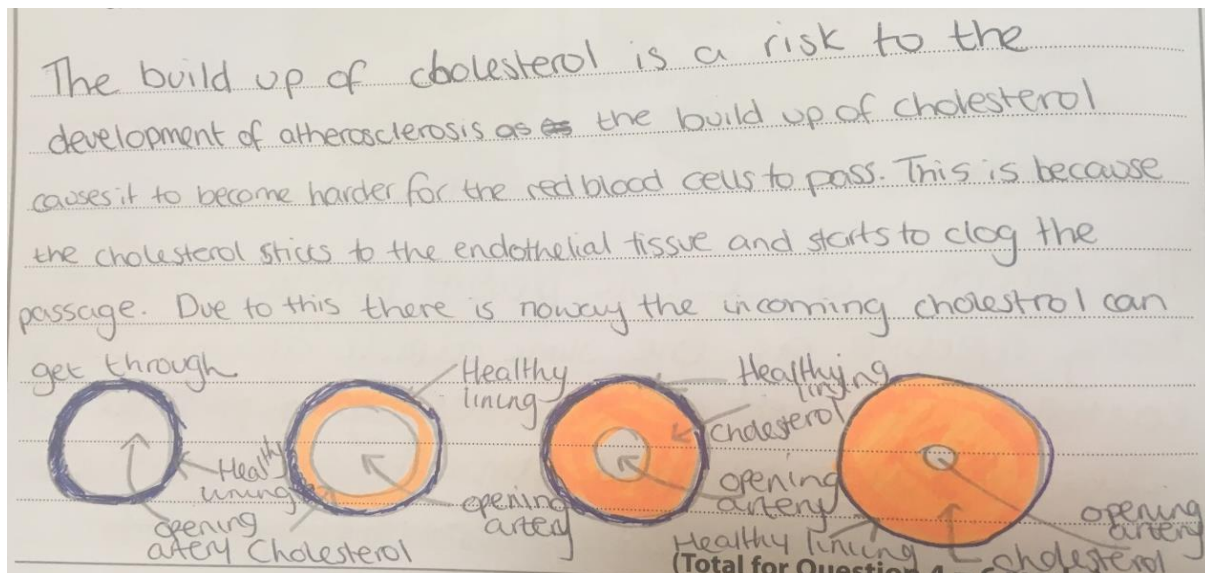 The build up of cholesterol is a risk to the
development of atherosclerosis as the build up of cholesterol
causes it to become harder for the red blood cells to pass. This is because
the cholesterol sticks to the endothelial tissue and starts to clog the
passage. Due to this there is noway the incoming cholestrol can
get through
Healthy
lining
opening
artery
Cholesterol
Healthy
lining
opening
artery
Healthying
ling
cholesterol
opening
artery
Healthy lining
cholesterol
opening
artery
(Total for Question 4